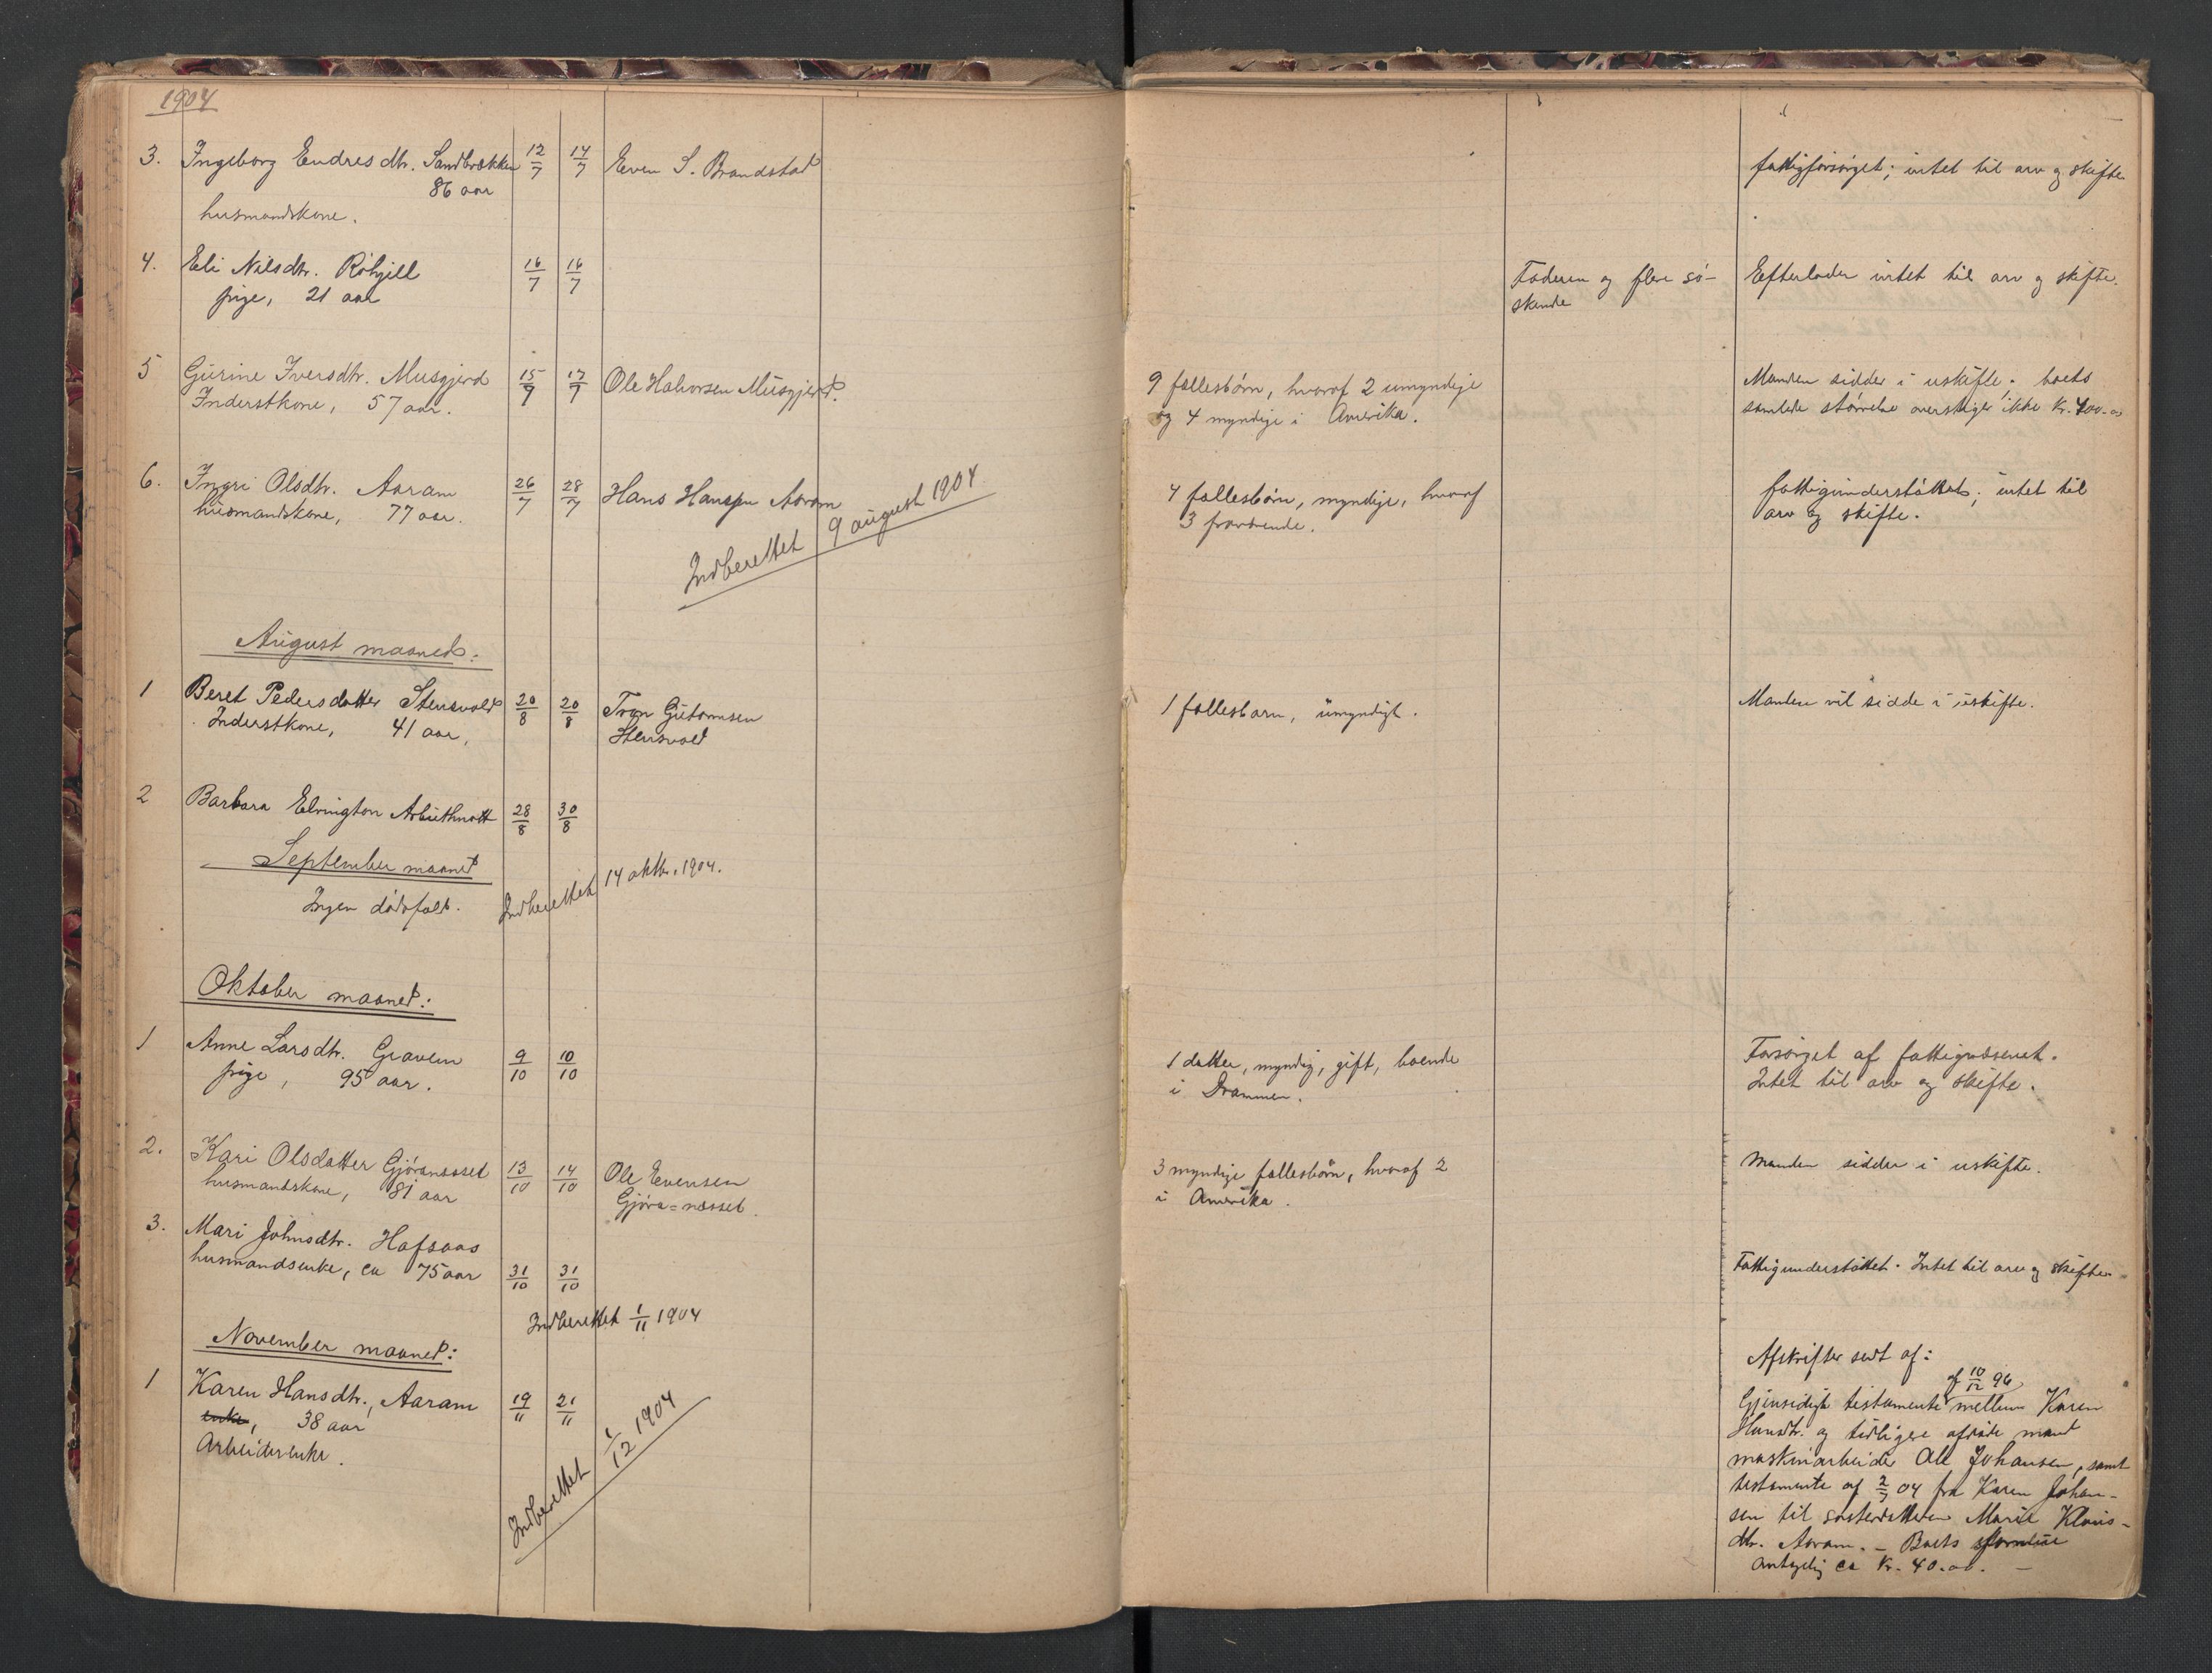 1904
3. Ingeborg Endresdtr. Sandbrækken 12/7 14/7 Even S. Brandstad fattigforsørget; intet til arv og skifte
86 aar
husmandskone.
4. Eli Nilsdtr. 16/7 16/7 Faderen og flere sø- Efterlader intet til arv og skifte.
pige, 21 aar skende
5 Gurine Iversdtr. Musgjerd 15/7 17/7 Ole Halvorsen Musgjerd. 9 fællesbørn, hvoraf 2 umyndige Manden sidder i uskifte; boets
Inderstkone, 57 aar. og 4 myndige i Amerika. samlede størrelse overstiger ikke kr. 400.00
6. Ingri Olsdtr. Aaram 26/7 28/7 Hans Hansen Aaram 4 fællesbørn, myndige, hvoraf fattigunderstøttet; intet til
husmandskone, 77 aar. 3 fraværende. arv og skifte.
Indberettet 9 august 1904
August maaned:
1 Beret Pedersdatter Stensvold 20/8 20/8 Tron Gutormsen 1 fællesbarn, umyndigt. Manden vil sidde i uskifte.
Inderstkone, 41 aar, Stensvold
2 Barbara Elrington Arbuthnott 28/8 30/8
September maaned
Ingen dødsfald. Indberettet 14 oktbr. 1904.
Oktober maaned:
1 Anne Larsdtr. Gravem 9/10 10/10 1 datter, myndig, gift, boende Forsørget af fattigvæsenet.
pige, 95 aar. i Drammen. Intet til arv og skifte.
2. Kari Olsdatter Gjøranæsset 13/10 14/10 Ole Evensen 3 myndige fællesbørn, hvoraf 2 Manden sidder i uskifte.
husmandskone, 81 aar Gjøra=næsset. i Amerika.
3. Mari Johnsdtr. Hafsaas
husmandsenke, ca 75 aar 31/10 31/10 Fattigunderstøttet. Intet til arv og skifte
Indberettet 1/11 1904
November maaned:
1 Karen Hansdtr., Aaram 19/11 21/11 Afskrifter sendt af:
enke, 38 aar af 10/12 96
Arbeiderenke. Gjensidigt testamente mellem Karen
Indberettet 1/12 1904 Hansdtr. og tidligere afdøde mand
maskinarbeider Ole Johansen, samt
testamente af 2/7 04 fra Karen Johan-
sen til søsterdatteren Marie Klaus-
dtr. Aaram. - Boets størrelse
antagelig ca kr. 40.00. -